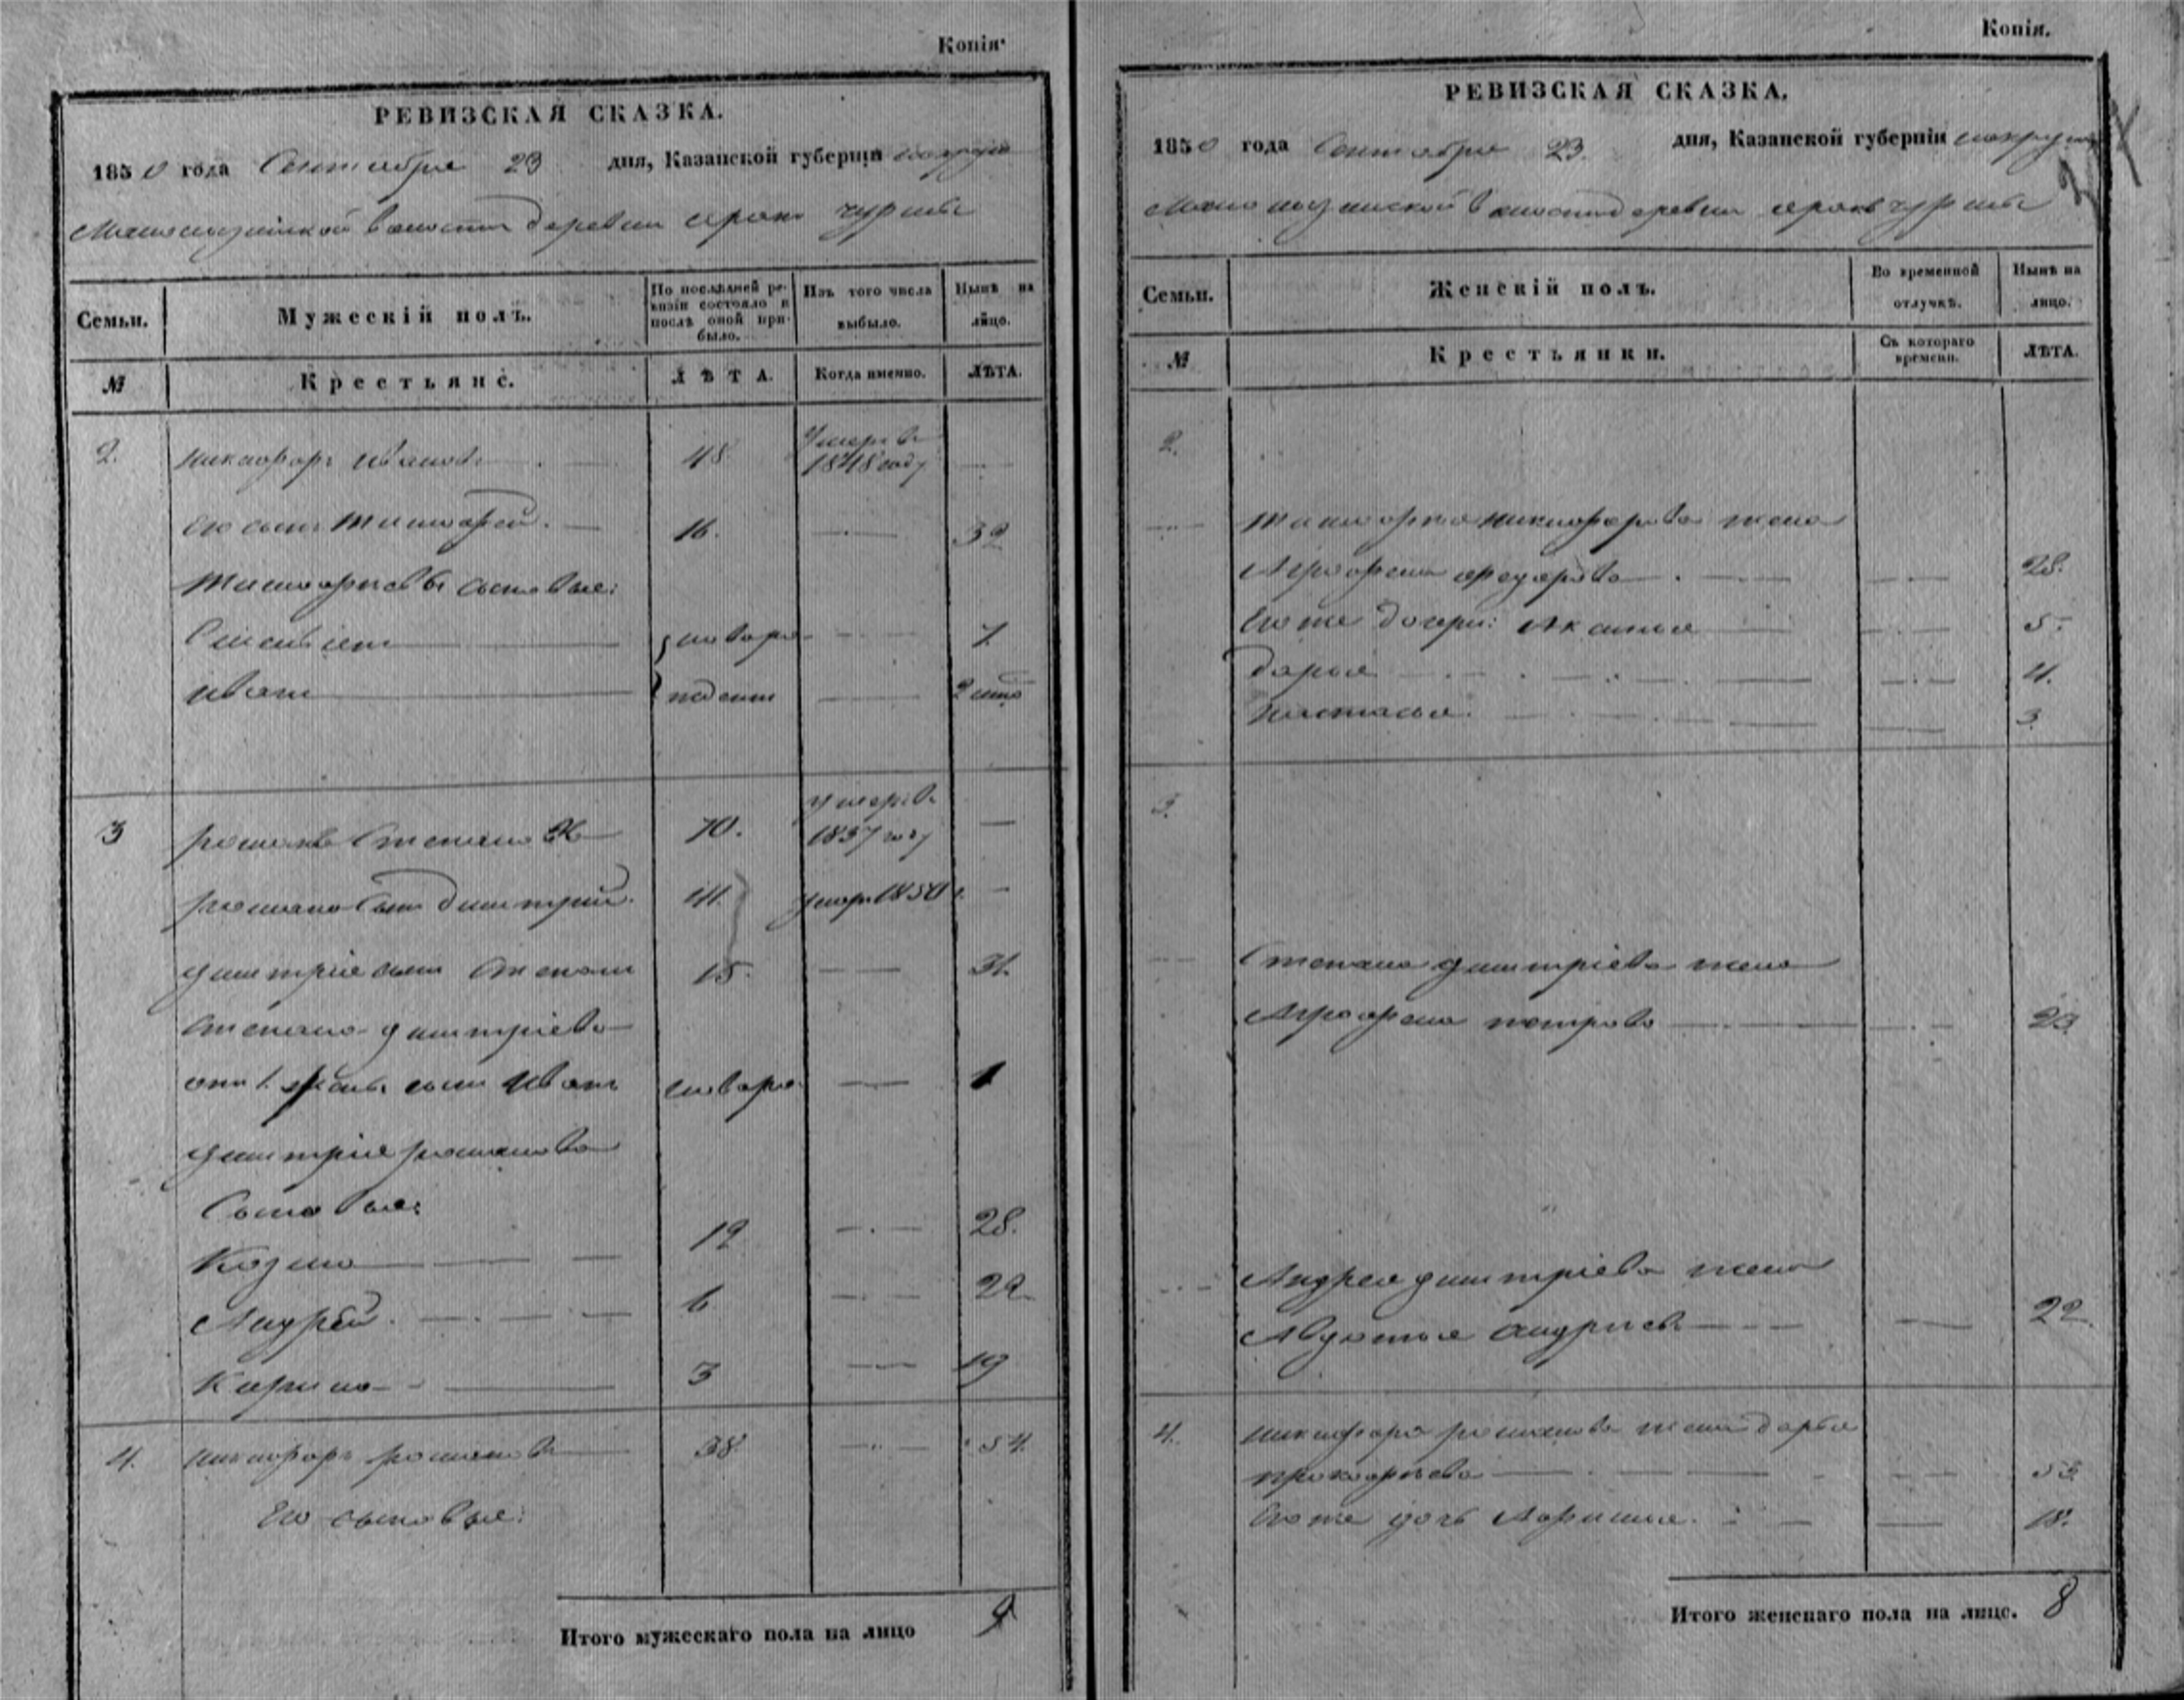 Копія.
РЕВИЗСКАЯ СКАЗКА.
1850 года Сентября 23 дня, Казанской губерніи
волости деревни
Семьи.
Мужескій полъ.
По послѣдней ревизіи состояло и послѣ оной прибыло.
Изъ того числа выбыло.
Нынѣ на лицо.
№
Крестьяне.
ЛѢТА.
Когда именно.
ЛѢТА.
2. Никифоръ Ивановъ 48. Умеръ въ 1848 году
Его сынъ Тимофей. 16. 32
Тимофеевы сыновья:
новоро 7
Иванъ жденны 2
3 Романъ Степановъ 70. умеръ въ 1837 году
Романа сынъ Дмитрий. 41. умеръ 1850
Дмитрія сынъ Степанъ 15. 31.
Степана Дмитріева
отъ 1. жены сынъ Иванъ новоро. 1
Дмитрія Романова
Сыновья:
Козма 12 28.
Андрей. 6 22
Карпъ 3 19
4. Никифоръ Романовъ 38. 54.
Его сыновья:
Итого мужескаго пола на лицо 9
Копія.
РЕВИЗСКАЯ СКАЗКА.
1850 года Сентября 23. дня, Казанской губерніи
волости деревни
Семьи.
Женскій полъ.
Во временной отлучкѣ.
Нынѣ на лицо.
№
Крестьянки.
Съ котораго времени.
ЛѢТА.
2.
Тимофея Никифорова жена
Аграфена Федорова 28.
Его же дочери: Аксинья 5.
Дарья 4.
Настасья. 3.
3.
Степана Дмитріева жена
Аграфена Петрова 23
Андрея Дмитріева жена
Авдотья Андреева 22.
4. Никифора Романова жена Дарья
Прокофьева 53
Его же дочь 18.
Итого женскаго пола на лицо. 8